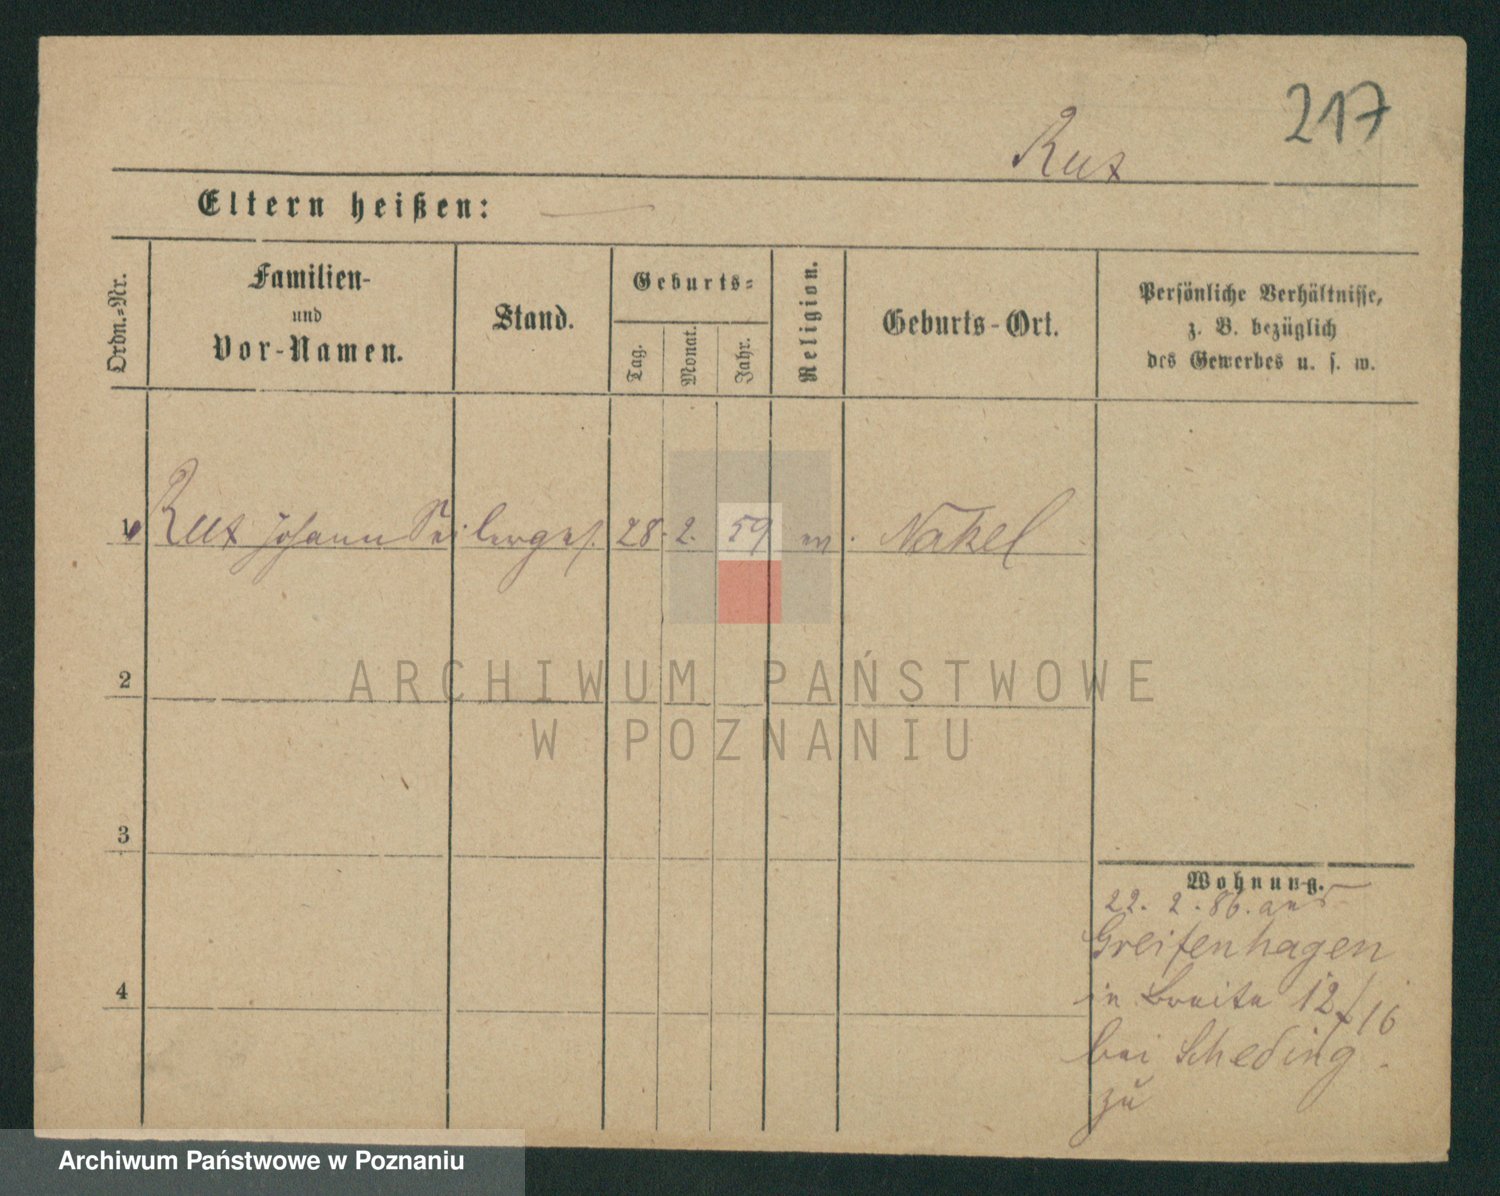 217
Rux
Eltern heißen:
Ordn.-Nr.
Familien-
und
Vor-Namen.
Stand.
Geburts-
Tag.
Monat.
Jahr.
Religion.
Geburts-Ort.
Persönliche Verhältnisse,
z. B. bezüglich
des Gewerbes u. s. w.
1 Rux Johann Seilerges. 28. 2. 59 Nakel
2
3
4
Wohnung.
22. 2. 86. aus
Greifenhagen
in Breite 12/16
bei Scheding
zu
ARCHIWUM PAŃSTWOWE
W POZNANIU
Archiwum Państwowe w Poznaniu